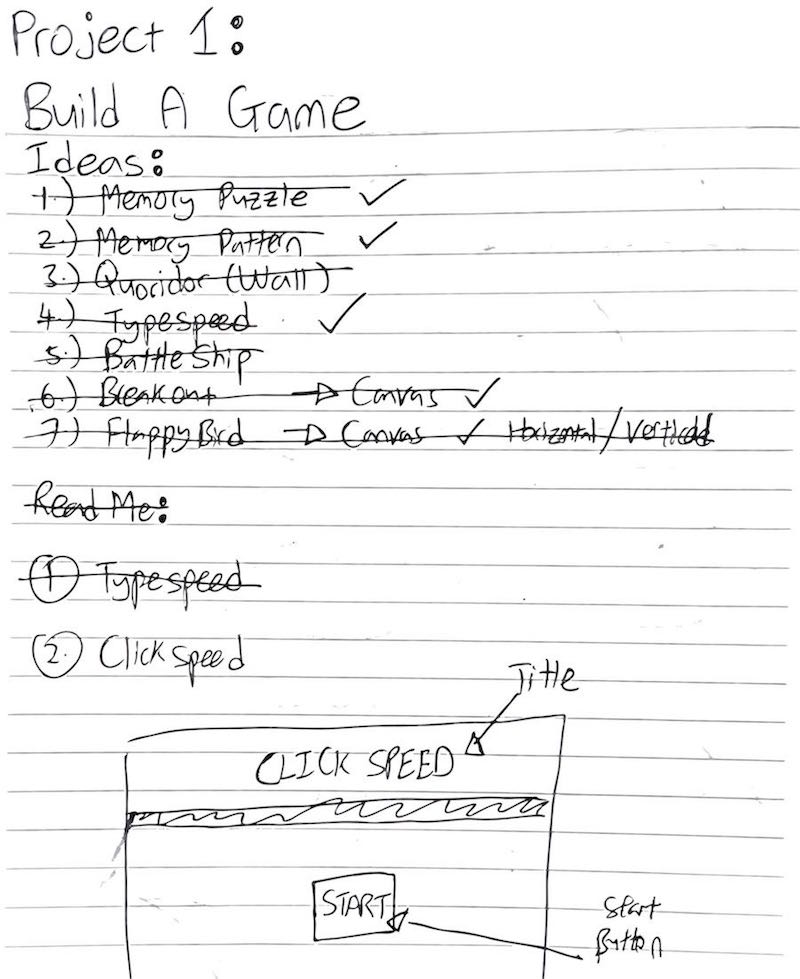 Project 1:
Build A Game
Ideas:
1.) Memory Puzzle ✓
2.) Memory Pattern ✓
3.) Quoridor (Wall)
4.) Typespeed ✓
5.) BattleShip
6.) Breakout → Canvas ✓
7.) Flappy Bird → Canvas ✓ Horizontal/Vertical
Read Me:
1. Typespeed
2. Click speed
Title
CLICK SPEED
START
Start
Button